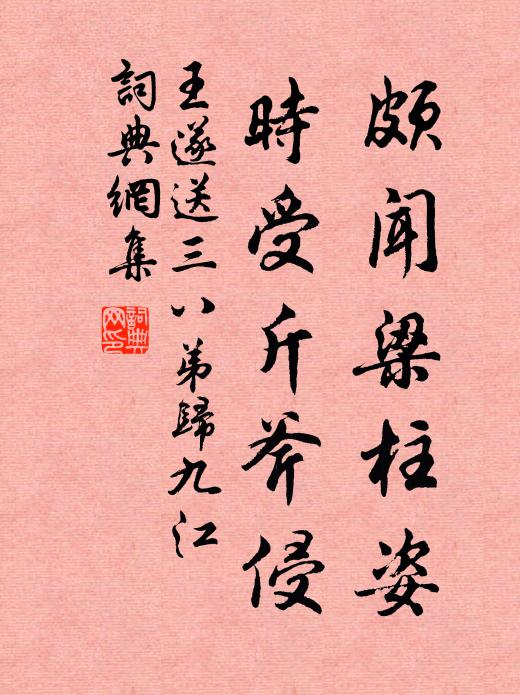 頗聞梁柱姿
時受斤斧侵
王遂送三八弟歸九江
詞典網集
詞典网印